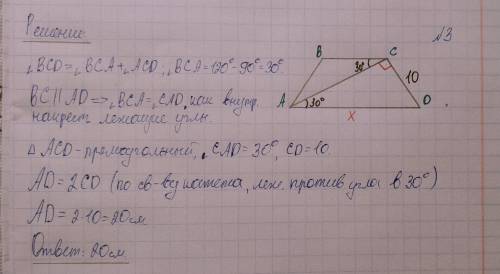 Решение
№3
∠BCD=∠BCA+∠ACD; ∠BCA=120°-90°=30°.
BC∥AD⟹∠BCA=∠CAD, как внутр.
накрест лежащие углы.
△ ACD-прямоугольный, ∠CAD=30°, CD=10.
AD=2CD (по св-ву катета, леж. против угла в 30°)
AD=2·10=20см
Ответ: 20см
B C
30°
10
A 30° D
x